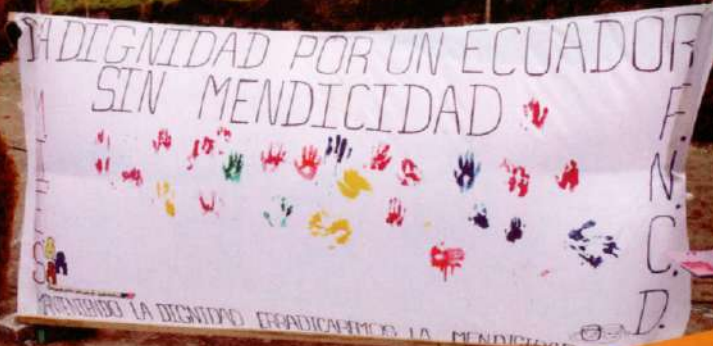 DIGNIDAD POR UN ECUADOR
SIN MENDICIDAD
M
I
E
S
F.
N.
C.
D.
MANTENIENDO LA DIGNIDAD ERRADICAREMOS LA